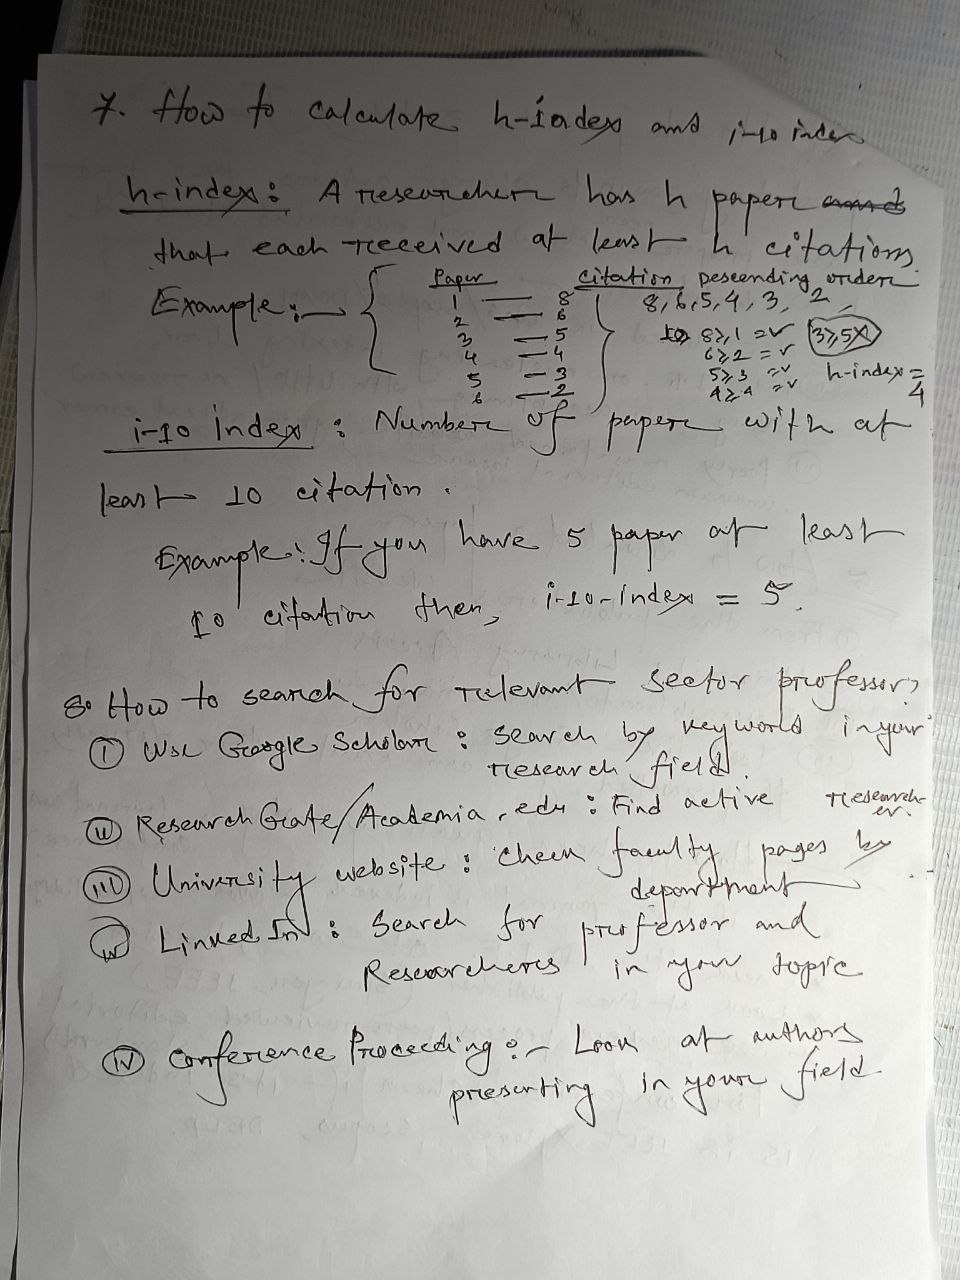 7. How to calculate h-index and i-10 index
h-index: A researcher has h paper and
that each received at least h citations
Paper Citation Descending order
Example:- 1 — 8 8, 6, 5, 4, 3, 2
2 — 6 8≥1 = ✓ 3≥5 X
3 — 5 6≥2 = ✓
4 — 4 5≥3 = ✓ h-index =
5 — 3 4≥4 = ✓ 4
6 — 2
i-10 index : Number of paper with at
least 10 citation.
Example: If you have 5 paper at least
10 citation then, i-10-index = 5.
8. How to search for relevant sector professor?
(I) Use Google Scholar : Search by keyworld in your
research field.
(II) ResearchGate/Academia.edu : Find active research-
er.
(III) University website : Check faculty pages by
department
(IV) LinkedIn : Search for professor and
Researchers in your topic
(IV) Conference Proceeding :- Look at authors
presenting in your field.